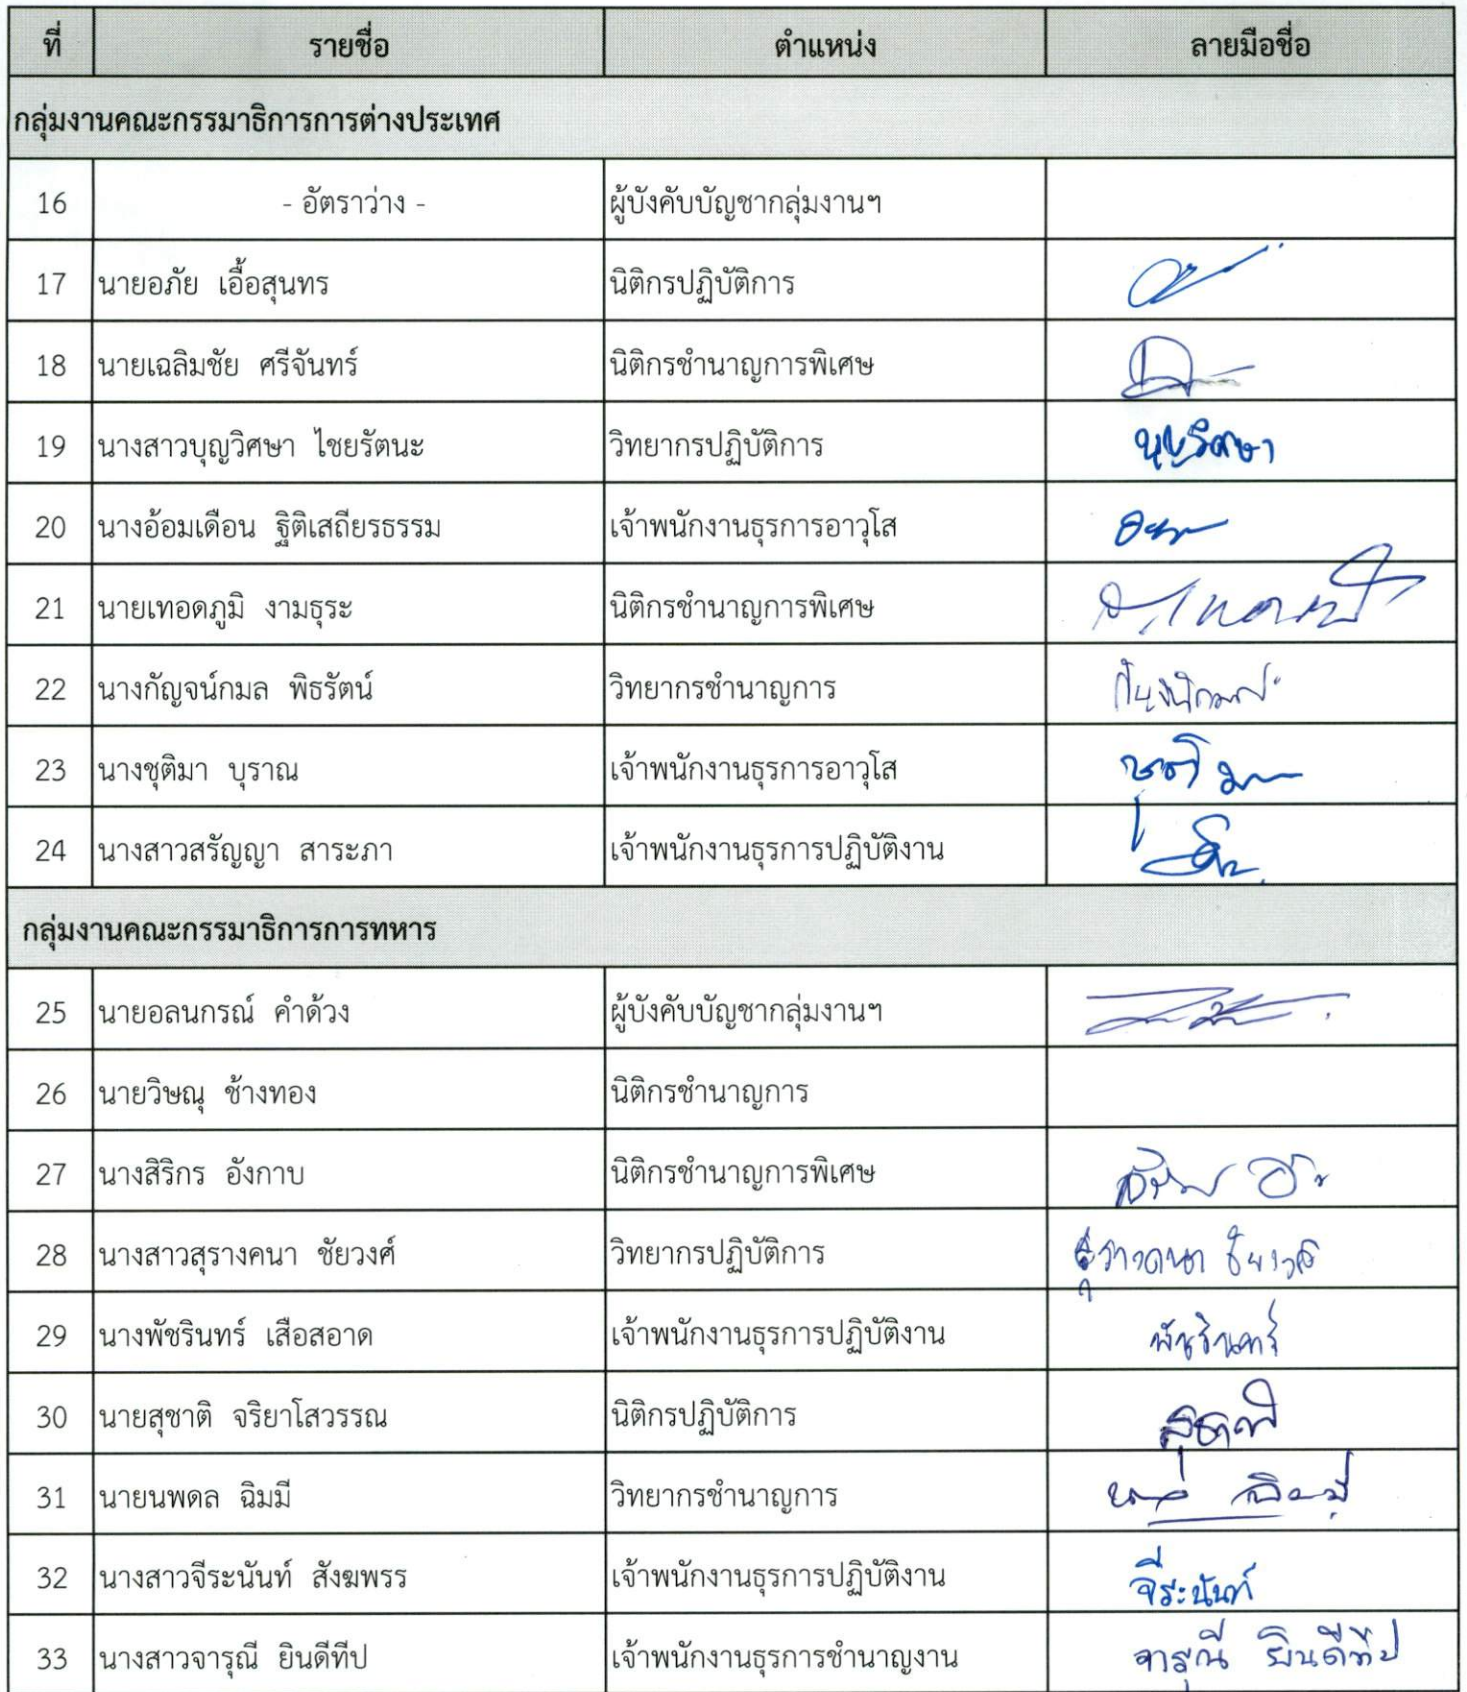 ที่ รายชื่อ ตำแหน่ง ลายมือชื่อ
กลุ่มงานคณะกรรมาธิการการต่างประเทศ
16 - อัตราว่าง - ผู้บังคับบัญชากลุ่มงานฯ
17 นายอภัย เอื้อสุนทร นิติกรปฏิบัติการ
18 นายเฉลิมชัย ศรีจันทร์ นิติกรชำนาญการพิเศษ
19 นางสาวบุญวิศษา ไชยรัตนะ วิทยากรปฏิบัติการ บุญวิศษา
20 นางอ้อมเดือน ฐิติเสถียรธรรม เจ้าพนักงานธุรการอาวุโส
21 นายเทอดภูมิ งามธุระ นิติกรชำนาญการพิเศษ
22 นางกัญจน์กมล พิธรัตน์ วิทยากรชำนาญการ
23 นางชุติมา บุราณ เจ้าพนักงานธุรการอาวุโส ชุติมา
24 นางสาวสรัญญา สาระภา เจ้าพนักงานธุรการปฏิบัติงาน
กลุ่มงานคณะกรรมาธิการการทหาร
25 นายอลนกรณ์ คำด้วง ผู้บังคับบัญชากลุ่มงานฯ
26 นายวิษณุ ช้างทอง นิติกรชำนาญการ
27 นางสิริกร อังกาบ นิติกรชำนาญการพิเศษ
28 นางสาวสุรางคนา ชัยวงศ์ วิทยากรปฏิบัติการ สุรางคนา ชัยวงศ์
29 นางพัชรินทร์ เสือสอาด เจ้าพนักงานธุรการปฏิบัติงาน พัชรินทร์
30 นายสุชาติ จริยาโสวรรณ นิติกรปฏิบัติการ สุชาติ
31 นายนพดล ฉิมมี วิทยากรชำนาญการ
32 นางสาวจีระนันท์ สังฆพรร เจ้าพนักงานธุรการปฏิบัติงาน จีระนันท์
33 นางสาวจารุณี ยินดีทีป เจ้าพนักงานธุรการชำนาญงาน จารุณี ยินดีทีป